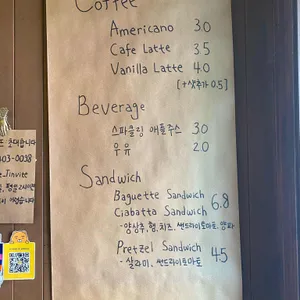 Coffee
Americano 3.0
Cafe Latte 3.5
Vanilla Latte 4.0
[+샷추가 0.5]
Beverage
스파클링 애플주스 3.0
우유 2.0
Sandwich
Baguette Sandwich
Ciabatta Sandwich 6.8
·양상추, 햄, 치즈, 썬드라이토마토, 양파
Pretzel Sandwich 4.5
·살라미, 썬드라이토마토
초대합니다
403-0038